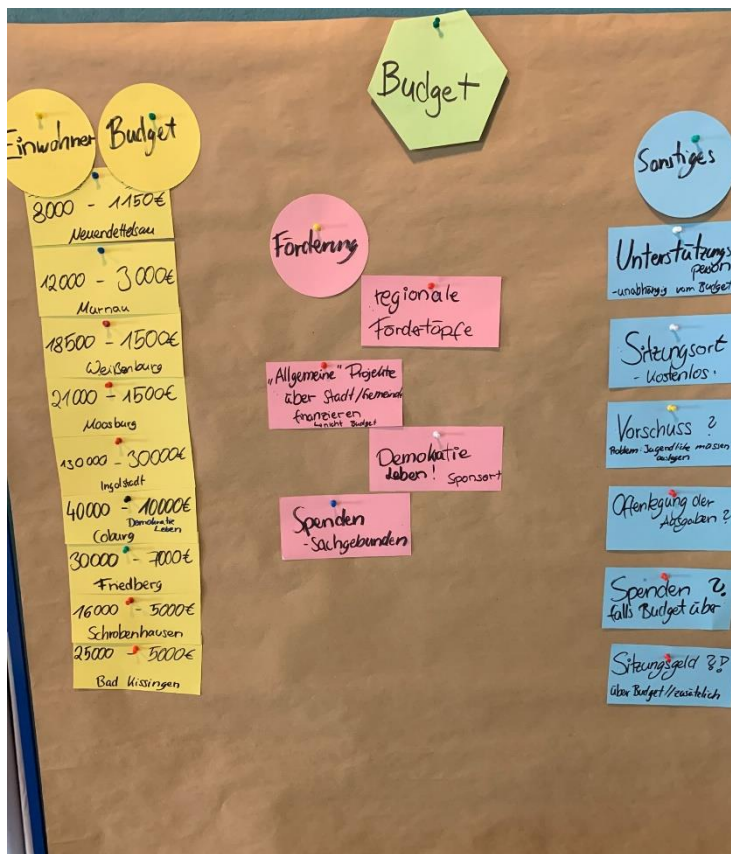 Budget
Einwohner
Budget
8000 - 1150€
Neuendettelsau
12000 - 3000€
Murnau
18500 - 1500€
Weißenburg
21000 - 1500€
Moosburg
130000 - 30000€
Ingolstadt
40000 - 10000€
Demokratie
Leben
Coburg
30000 - 7000€
Friedberg
16000 - 5000€
Schrobenhausen
25000 - 5000€
Bad Kissingen
Förderung
regionale
Fördertöpfe
„Allgemeine" Projekte
über Stadt/Gemeinde
finanzieren
nicht Budget
Demokratie
Leben!
Sponsort
Spenden
- Sachgebunden
Sonstiges
Unterstützungs
person
- unabhängig vom Budget
Sitzungsort
- kostenlos
Vorschuss ?
Problem: Jugendliche müssen
auslegen
Offenlegung der
Ausgaben ?
Spenden ?
falls Budget über
Sitzungsgeld ??
über Budget//zusätzlich